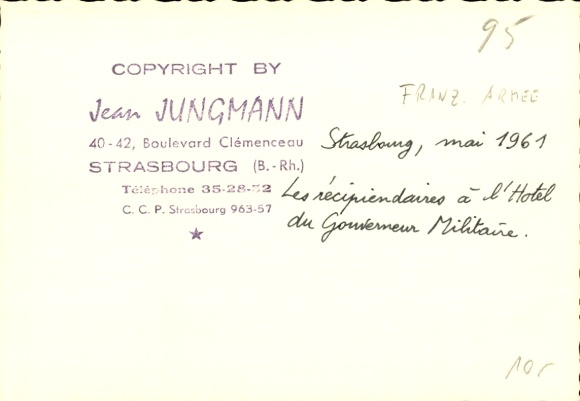 95
COPYRIGHT BY
Jean JUNGMANN
40-42, Boulevard Clémenceau
STRASBOURG (B.-Rh.)
Téléphone 35-28-32
C. C. P. Strasbourg 963-57
FRANZ. ARMEE
Strasbourg, mai 1961
Les récipiendaires à l'Hotel
du Gouverneur Militaire.